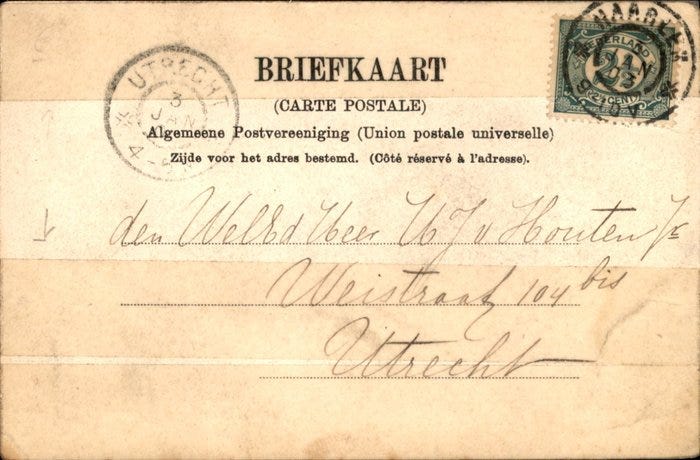 BRIEFKAART
(CARTE POSTALE)
Algemeene Postvereeniging (Union postale universelle)
Zijde voor het adres bestemd. (Côté réservé à l'adresse).
UTRECHT
3
JAN
NEDERLAND
2½ CENT
JAN
03
den WelEd Heer H J v Houten Jr
Weistraat 104 bis
Utrecht